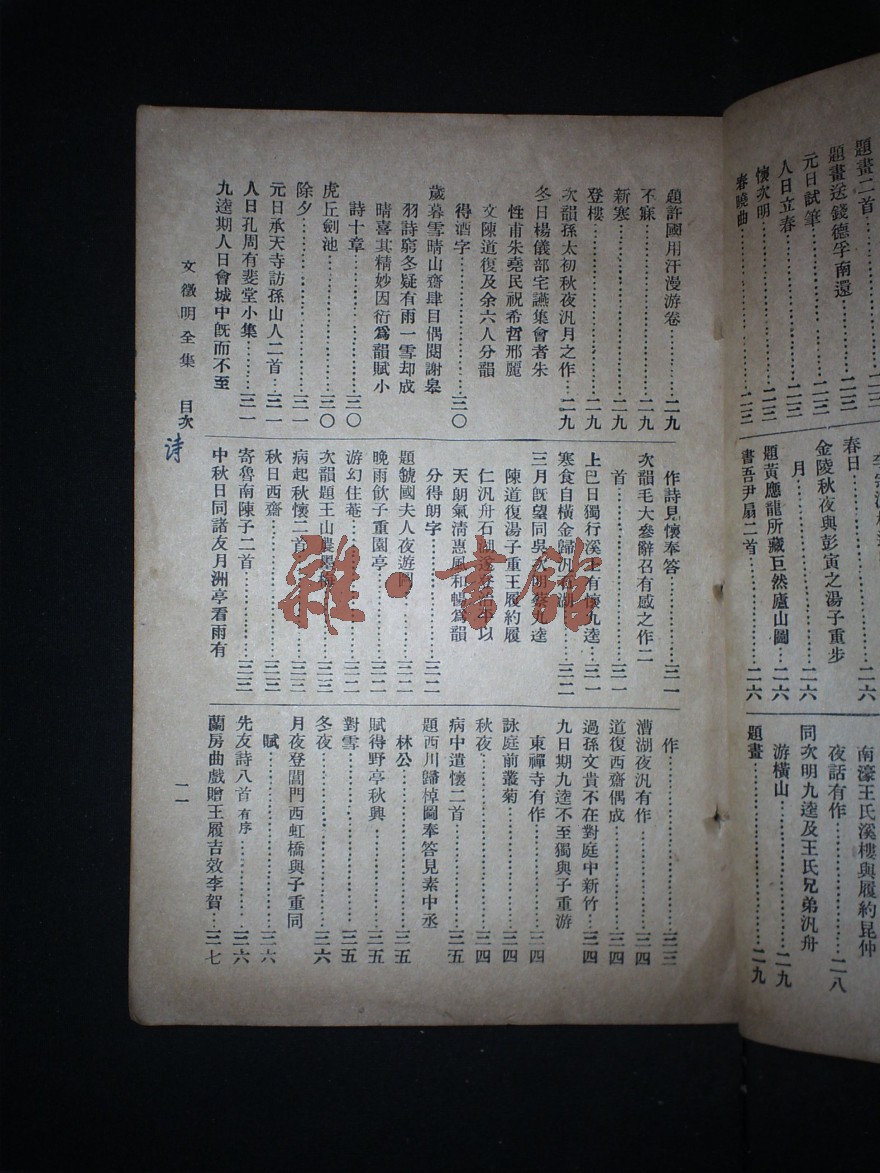 題畫二首
題畫送錢德孚南還……二三
元日試筆……二三
人日立春……二三
懷次明……二三
春曉曲……二三
春日
金陵秋夜與彭寅之湯子重步
月……二六
題黃應龍所藏巨然廬山圖……二六
書吾尹扇二首……二六
南濠王氏溪樓與履約昆仲
夜話有作……二八
同次明九逵及王氏兄弟汎舟
游橫山……二九
題畫……二九
題許國用汗漫游卷……二九
不寐……二九
新寒……二九
登樓……二九
次韻孫太初秋夜汎月之作……二九
冬日楊儀部宅讌集會者朱
性甫朱堯民祝希哲邢麗
文陳道復及余六人分韻
得酒字……三〇
歲暮雪晴山齋肆目偶閱謝皋
羽詩窮冬疑有雨一雪却成
晴喜其精妙因衍爲韻賦小
詩十章……三〇
虎丘劍池……三〇
除夕……三一
元日承天寺訪孫山人二首……三一
人日孔周有斐堂小集……三一
九逵期人日會城中旣而不至
作詩見懷奉答……三一
次韻毛大參辭召有感之作二
首……三一
上巳日獨行溪上有懷九逵……三一
寒食自橫金歸汎石湖……三二
三月旣望同吳次明蔡九逵
陳道復湯子重王履約履
仁汎舟石湖遂登治平以
天朗氣清惠風和暢爲韻
分得朗字……三二
題虢國夫人夜遊圖……三二
晚雨飲子重園亭……三二
游幻住菴……三二
次韻題王山農墨梅……三三
病起秋懷二首……三三
秋日西齋……三三
寄魯南陳子二首……三三
中秋日同諸友月洲亭看雨有
作……三三
漕湖夜汎有作……三四
道復西齋偶成……三四
過孫文貴不在對庭中新竹……三四
九日期九逵不至獨與子重游
東禪寺有作……三四
詠庭前叢菊……三四
秋夜……三四
病中遣懷二首……三五
題西川歸棹圖奉答見素中丞
林公……三五
賦得野亭秋興……三五
對雪……三五
冬夜……三六
月夜登閶門西虹橋與子重同
賦……三六
先友詩八首 有序……三六
蘭房曲戲贈王履吉效李賀……三七
文徵明全集 目次 一一
詩
雜·書館